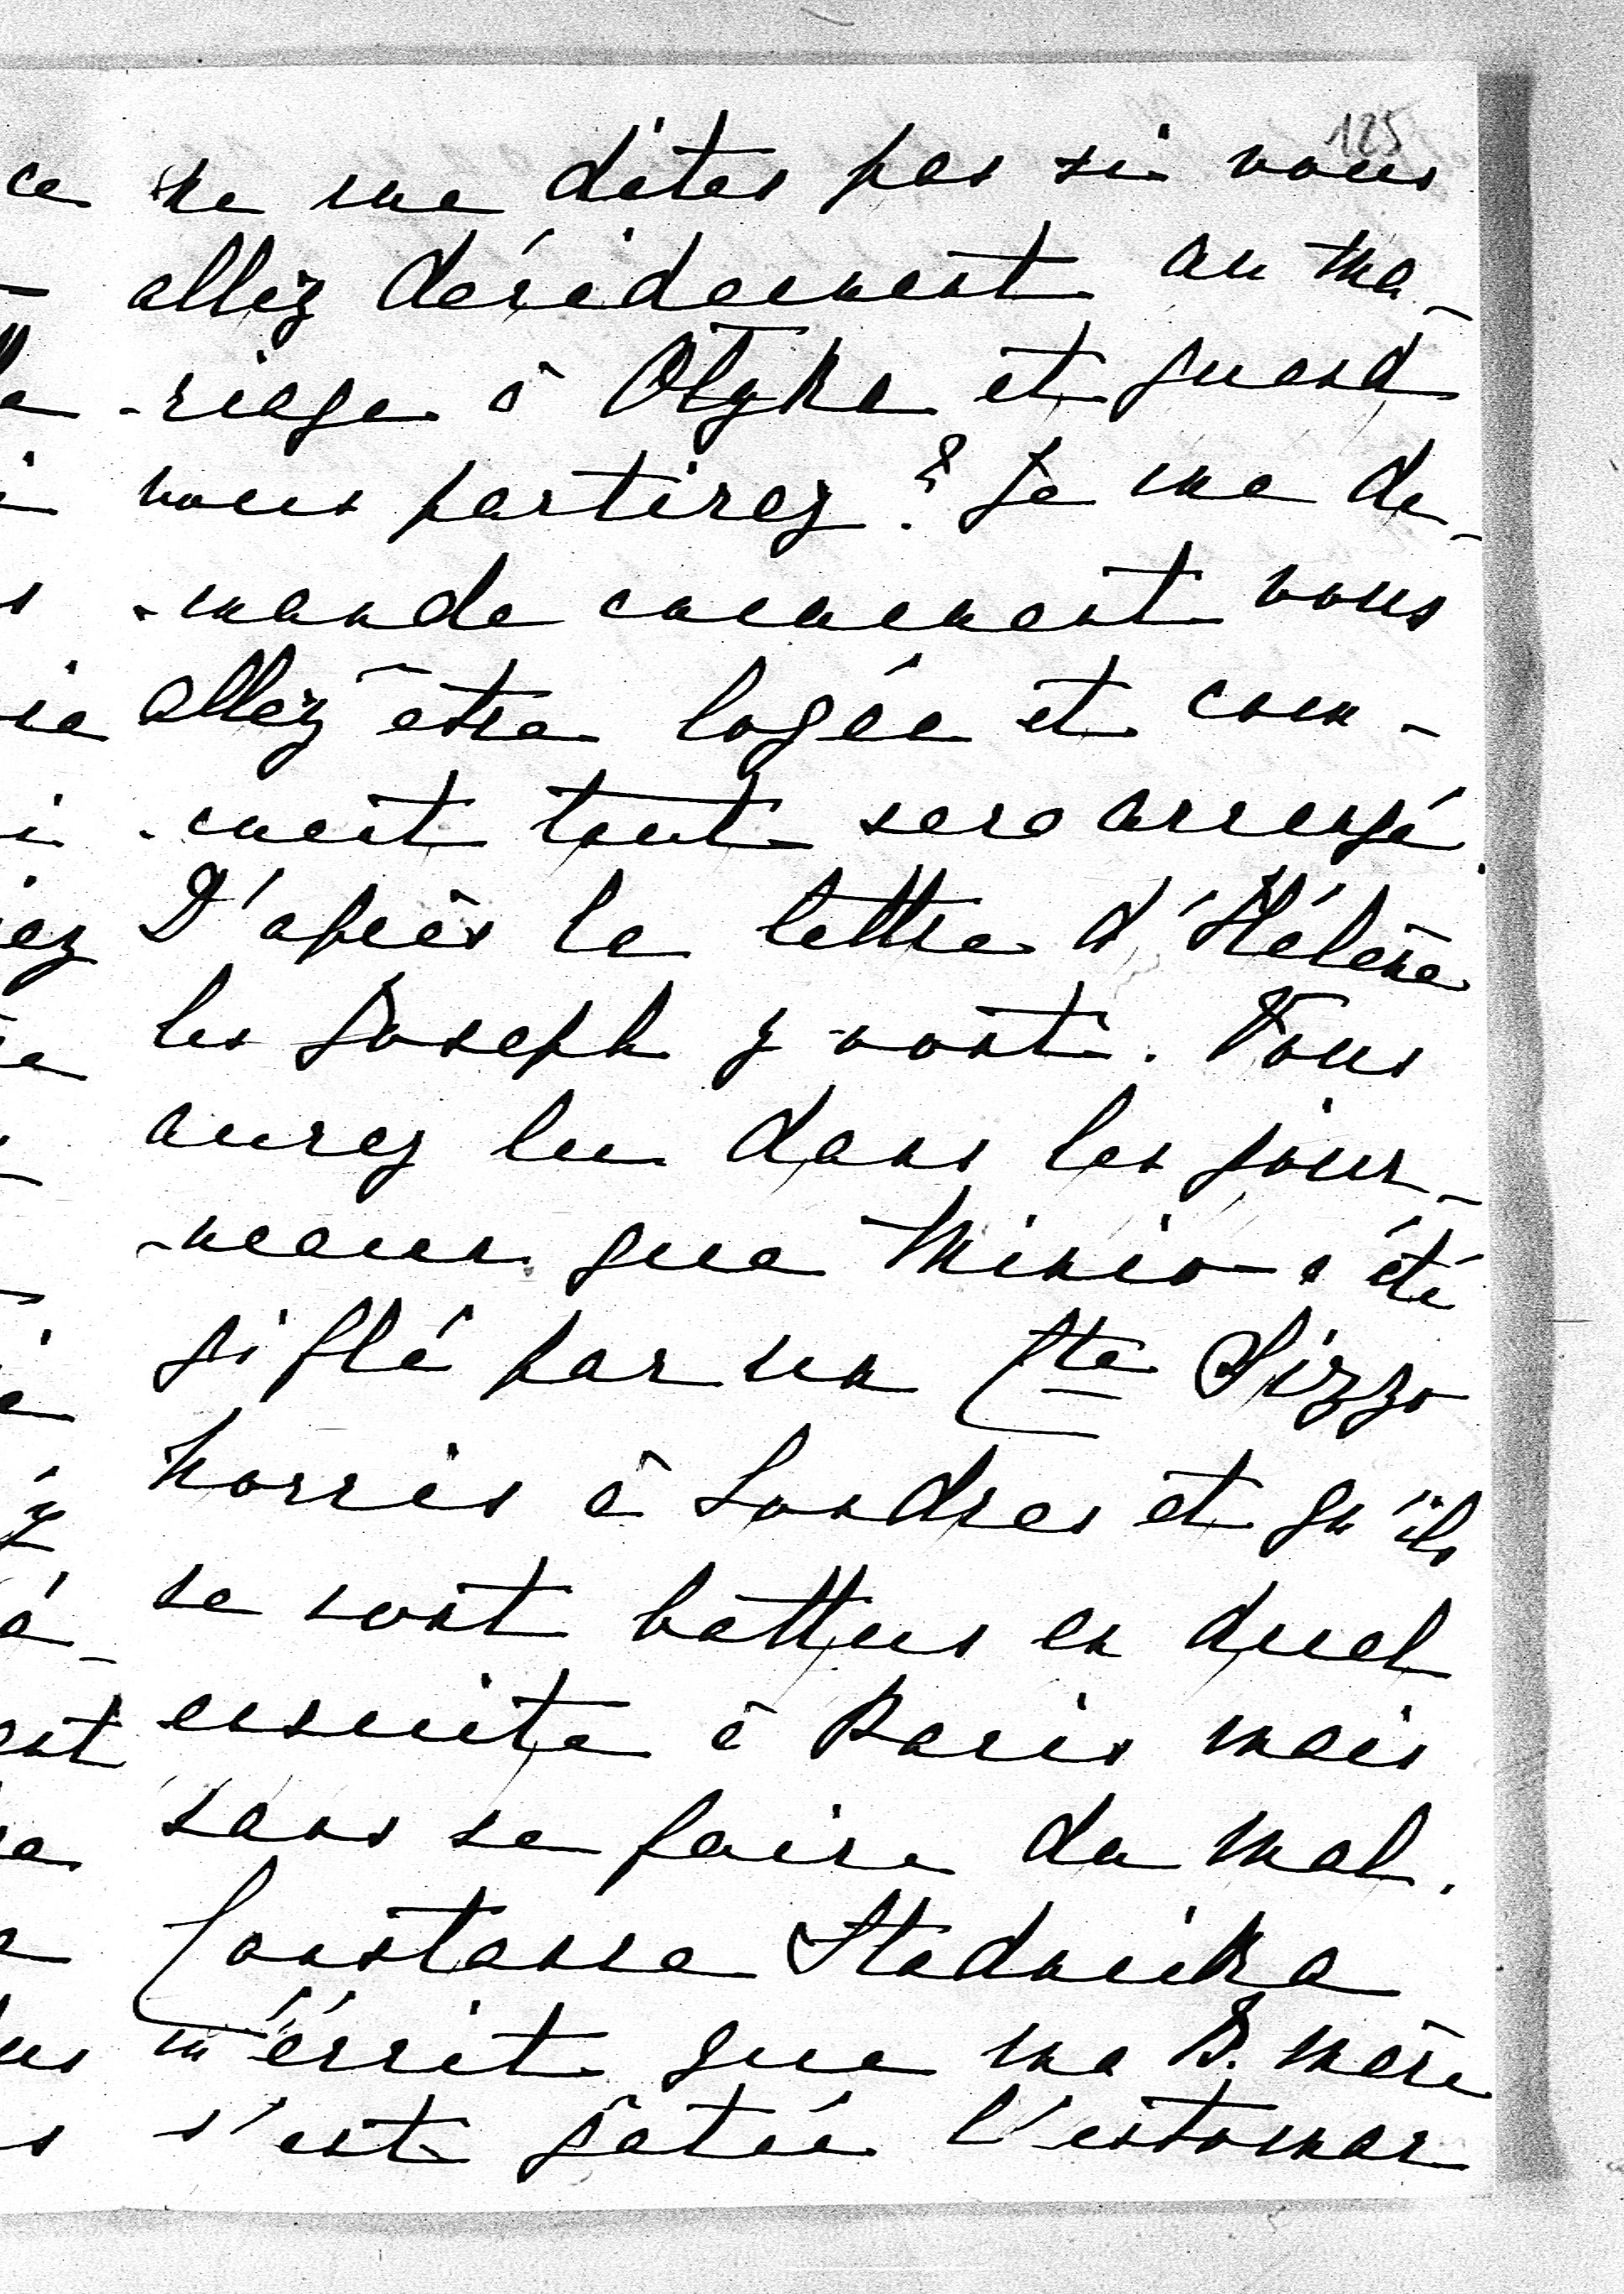 125
ne me dites pas si vous
allez décidement au ma-
-riage à Olyka et quand
vous partirez? Je me de-
-mande comment vous
allez être logée et com-
-ment tout sera arrangé.
D'après la lettre d'Hélène
les Joseph y vont. Vous
aurez lu dans les jour-
-neaux que Minio a été
giflé par un Cte Sizzo
Norris à Londres et qu'ils
se sont battus en duel
ensuite à Paris mais
sans se faire du mal.
Constance Stadnicka
m'écrit que ma B. mère
s'est gâtée l'estomac